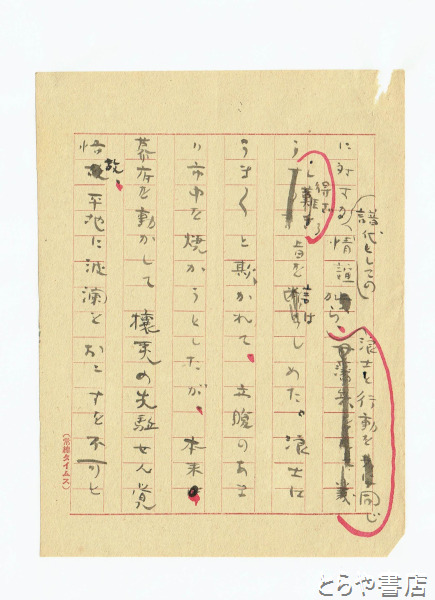 譜代としての
に対する情誼から、
浪士と行動を同じ
うし難き
得ざる
旨を言はしめた。浪士は
うまうまと欺かれて、立腹のあま
り市中を焼かうとしたが、本来
幕府を動かして攘夷の先駆せん覚
悟故、平地に波瀾をおこすを不可と
(常総タイムス)
とらや書店